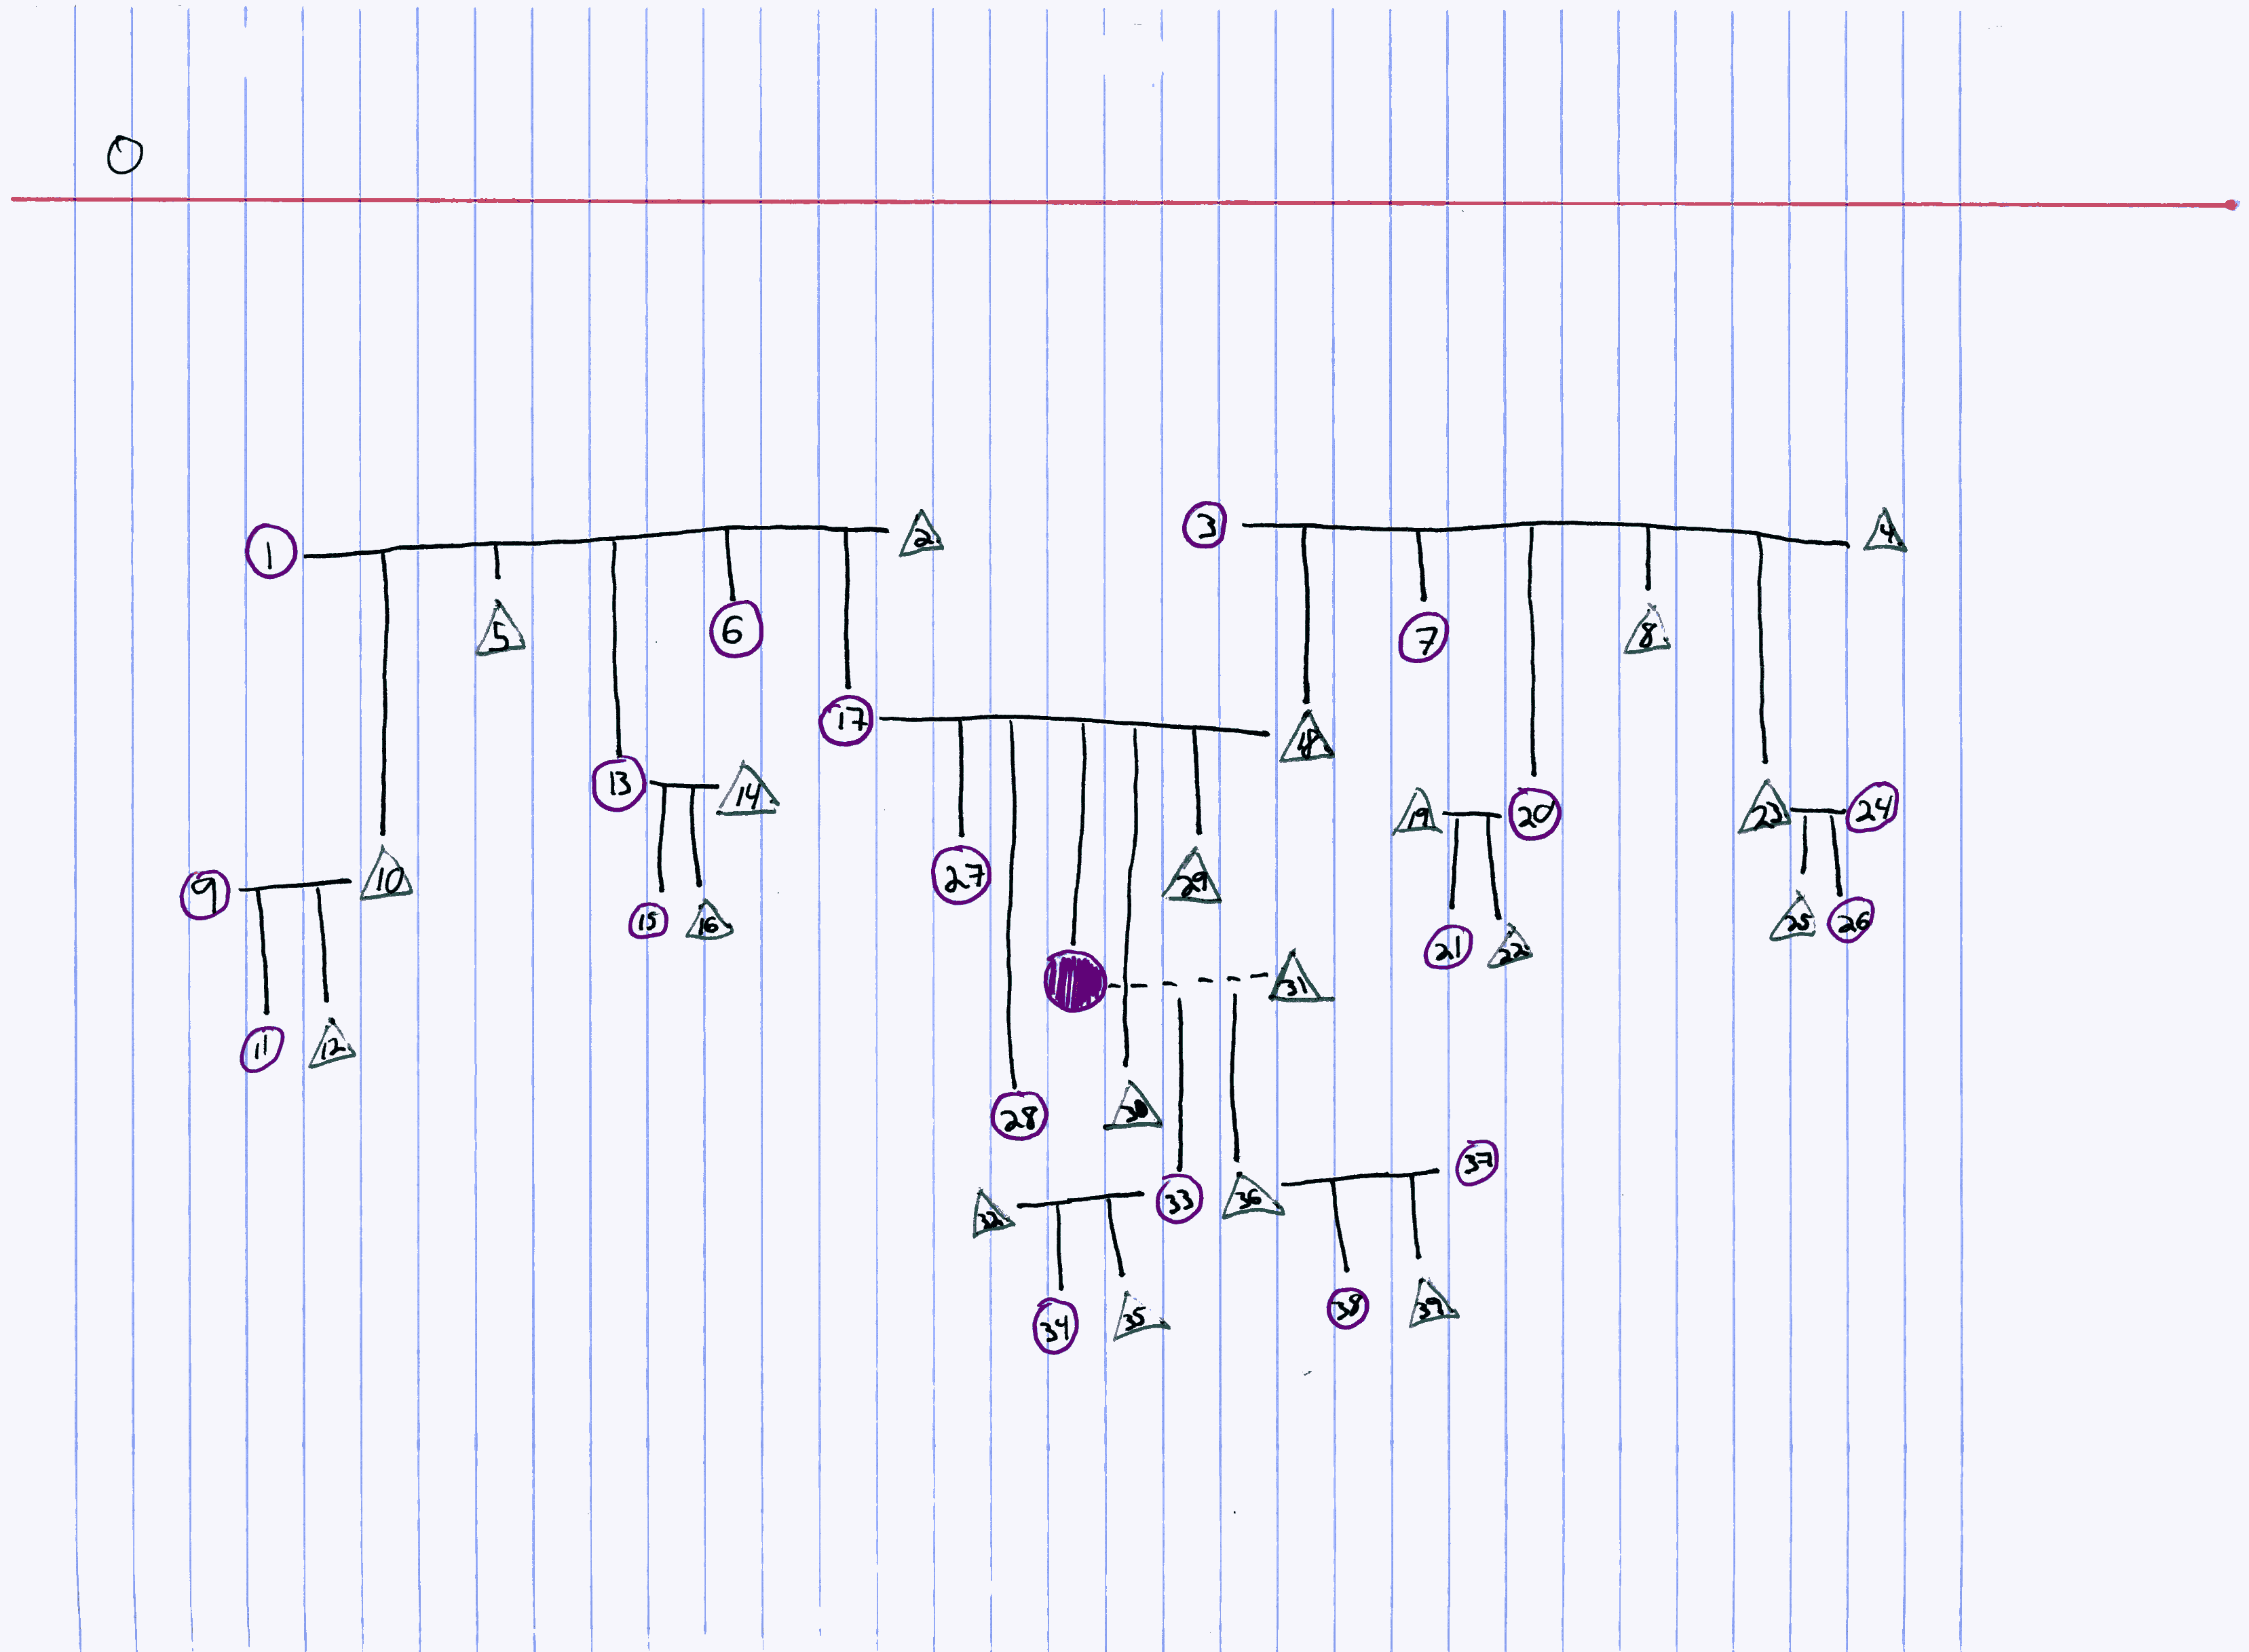 0
1
2
3
4
5
6
7
8
17
18
13
14
19
20
23
24
9
10
27
29
15
16
21
22
25
26
31
11
12
28
30
32
33
36
37
34
35
38
39